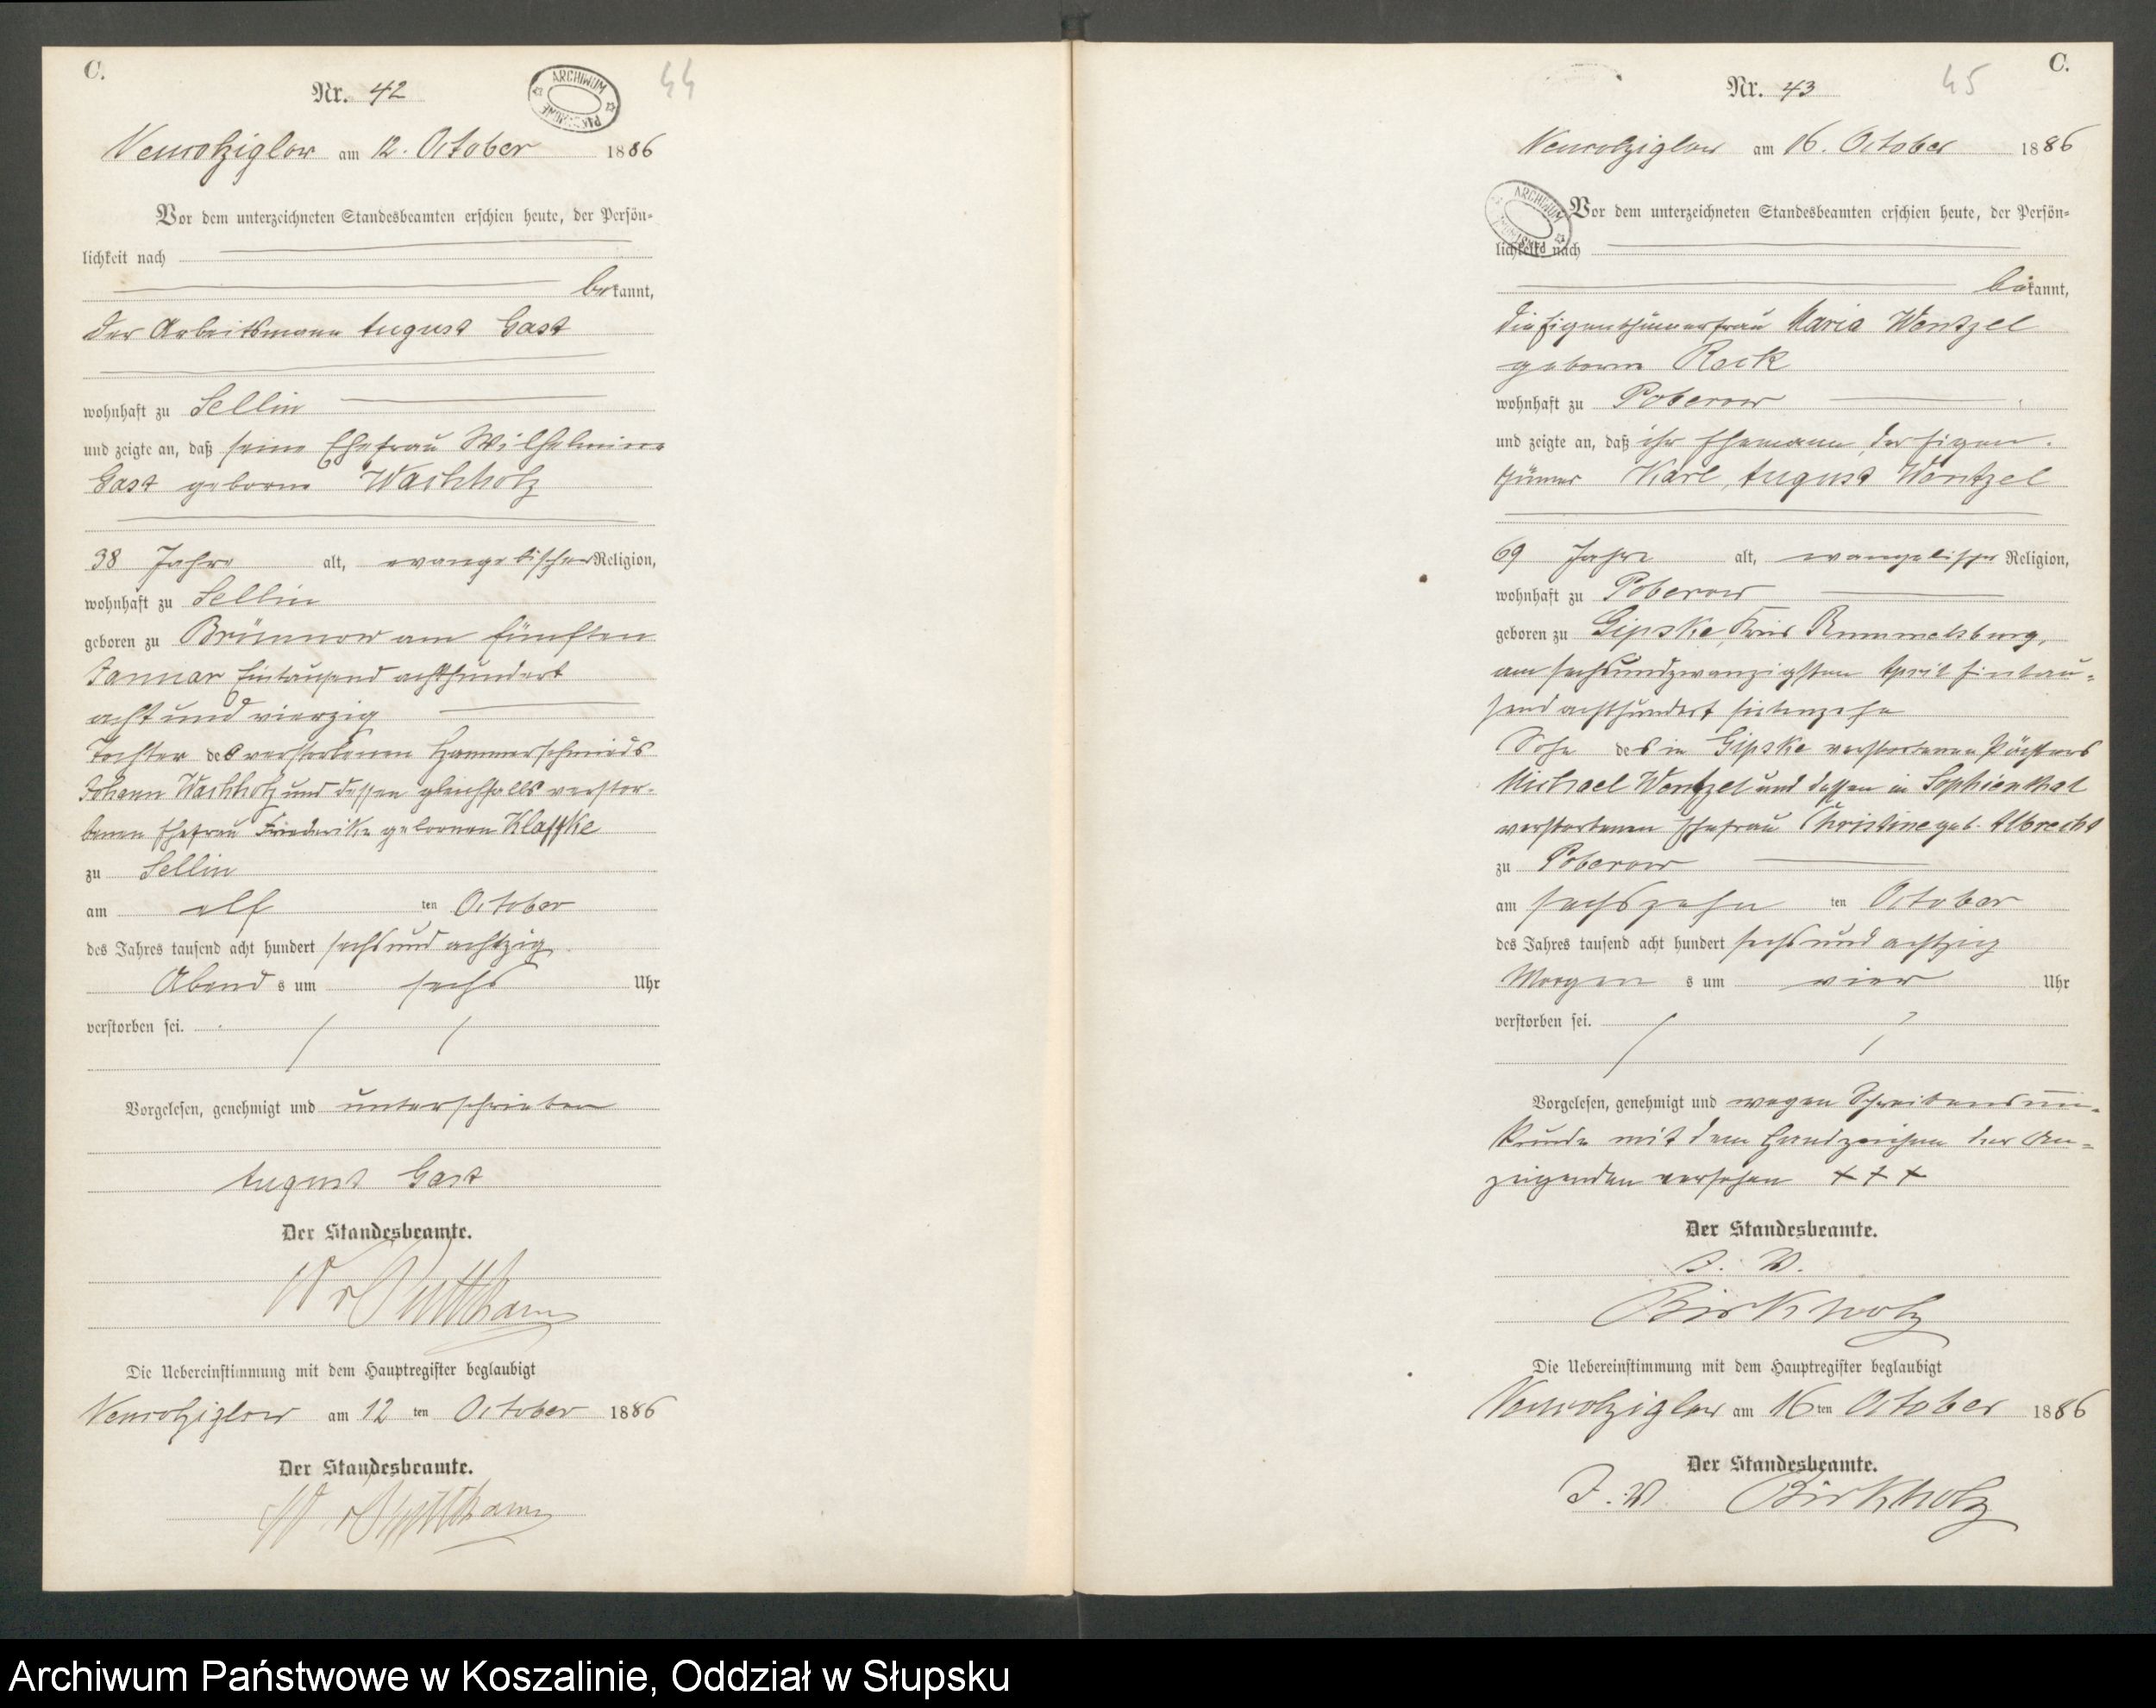 C.
Nr. 42
ARCHIWUM
PAŃSTWOWE
44
Neuwolziglow am 12. October 1886
Vor dem unterzeichneten Standesbeamten erschien heute, der Persön-
lichkeit nach
bekannt,
der Arbeitsmann August Gast
wohnhaft zu Sellin
und zeigte an, daß seine Ehefrau Wilhelmine
Gast geborne Wachholz
38 Jahre alt, evangelischer Religion,
wohnhaft zu Sellin
geboren zu Brünnow am fünften
Januar Eintausend achthundert
acht und vierzig
Tochter des verstorbenen Hammerschmieds
Johann Wachholz und dessen gleichfalls verstor-
benen Ehefrau Friederike gebornen Klaffke
zu Sellin
am elf ten October
des Jahres tausend acht hundert sechs und achtzig
Abend s um sechs Uhr
verstorben sei.
Vorgelesen, genehmigt und unterschrieben
August Gast
Der Standesbeamte.
Die Uebereinstimmung mit dem Hauptregister beglaubigt
Neuwolziglow am 12 ten October 1886
Der Standesbeamte.
C.
Nr. 43
45
Neuwolziglow am 16. October 1886
ARCHIWUM
Vor dem unterzeichneten Standesbeamten erschien heute, der Persön-
lichkeit nach
bekannt,
die Eigenthümerfrau Maria Wentzel
geborne Reck
wohnhaft zu Poberow
und zeigte an, daß ihr Ehemann, der Eigen-
thümer Karl, August Wentzel
69 Jahre alt, evangelischer Religion,
wohnhaft zu Poberow
geboren zu Gipske, Kreis Rummelsburg,
am sechsundzwanzigsten April Eintau-
send achthundert siebenzehn
Sohn des in Gipske verstorbenen Pächters
Michael Wentzel und dessen in Sophienthal
verstorbenen Ehefrau Christine geb. Albrecht
zu Poberow
am sechszehn ten October
des Jahres tausend acht hundert sechs und achtzig
Morgen s um vier Uhr
verstorben sei.
Vorgelesen, genehmigt und wegen Schreibensun-
kunde mit dem Handzeichen der An-
zeigenden versehen + + +
Der Standesbeamte.
J. V.
Birkholz
Die Uebereinstimmung mit dem Hauptregister beglaubigt
Neuwolziglow am 16 ten October 1886
Der Standesbeamte.
J. V. Birkholz
Archiwum Państwowe w Koszalinie, Oddział w Słupsku